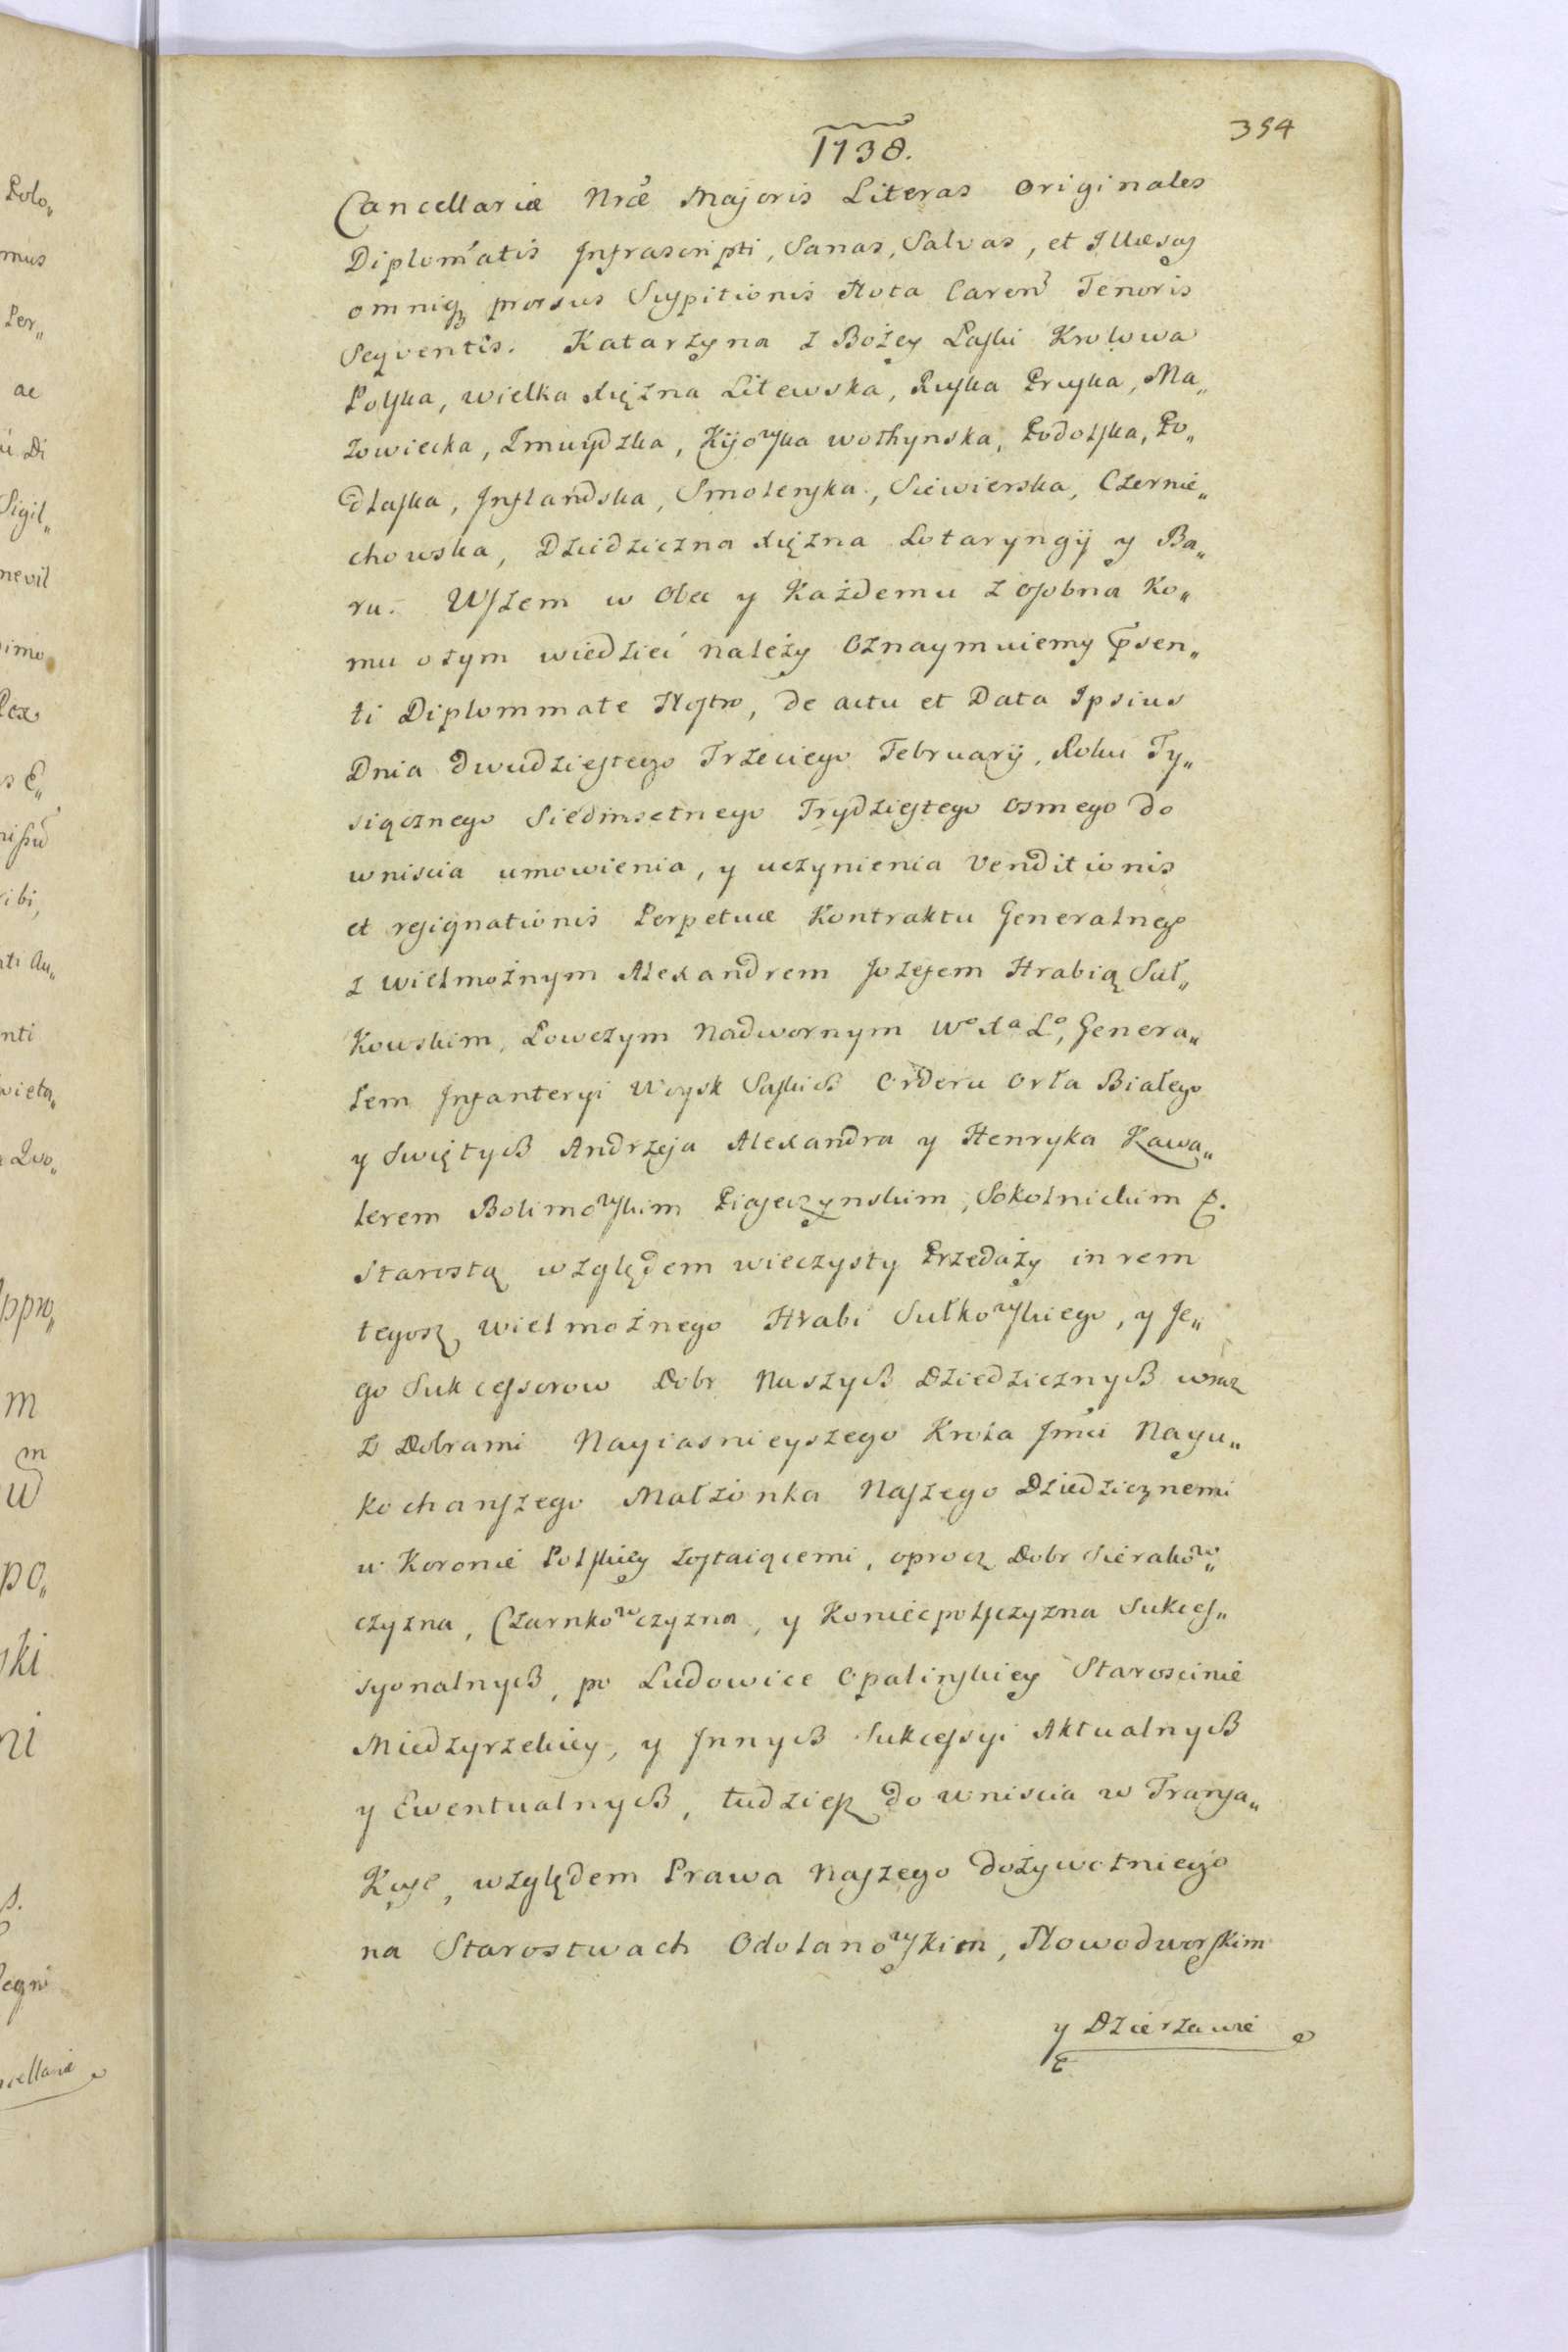 354
1738.
Cancellariæ Nræ Majoris Literas originales
Diplomatis Infrascripti, Sanas, Salvas, et Illæsas
omniq₃ prorsus Suspitionis Nota Caren Tenoris
Seqventis. Katarzyna z Bożey Łaski Krolowa
Polska, wielka Xiężna Litewska, Ruska Pruska, Ma„
zowiecka, Zmuydzka, Kijowska wołhynska, Podolska, Po„
dlaska, Inflandska, Smolenska, Siewierska, Czernie„
chowska, Dziedziczna Xiężna Lotaryngij y Ba„
ru. Wszem w Obec y Każdemu z osobna Ko„
mu o tym wiedzieć należy Oznaymuiemy Psen„
ti Diplommate Nostro, de actu et Data Ipsius
Dnia dwudziestego Trzeciego Februarij, Roku Ty„
siącznego Siedmsetnego Trydziestego Osmego do
wniscia umowienia, y uczynienia Venditionis
et resignationis Perpetuæ Kontraktu Generalnego
z wielmożnym Alexandrem Jozefem Hrabią Suł„
Kowskim, Łowczym Nadwornym Wo Xa Lo, Genera„
łem Infanteryi Woysk Saskich Orderu Orła Białego
y Swiętych Andrzeja Alexandra y Henryka Kawa„
lerem Bolimowskim Piaseczynskim, Sokolnickim &.
Starostą względem wieczysty Przedaży in rem
tegosz wielmożnego Hrabi Sułkowskiego, y Je„
go Sukcessorow Dobr Naszych Dziedzicznych wraz
z Dobrami Nayiasnieyszego Krola Jmci Nayu„
kochanszego Małzonka Naszego Dziedzicznemi
w Koronie Polskiey zostaiącemi, oprocz Dobr Sierakow„
czyzna, Czarnkowczyzna, y Koniecpolszczyzna Sukces„
syonalnych, po Ludowice Opalinskiey Staroscinie
Miedzyrzeckiey, y Innych Sukcessyi Aktualnych
y Ewentualnych, tudziesz do wniscia w Transa„
Kcyę, względem Prawa Naszego dożywotniego
na Starostwach Odolanowskim, Nowodworskim
y Dzierzawie